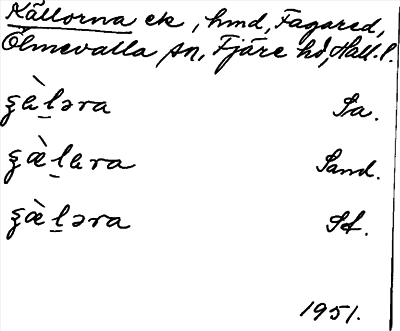 Källorna ek, hmd, Fagared,
Ölmevalla sn, Fjäre hd, Hall. l.
ʂàl̠əra Sa.
ʂæ̀l̠ara Sand.
ʂæ̀l̠əra Sf.
1951.